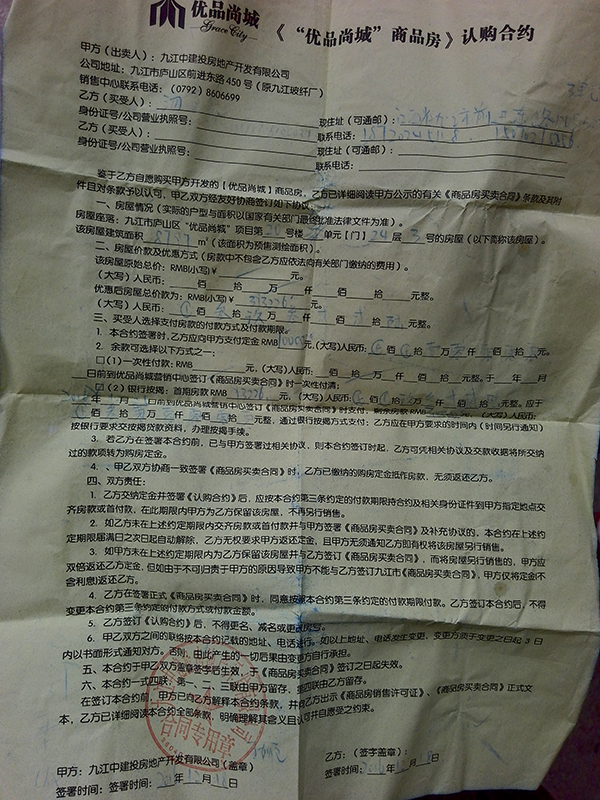 优品尚城
Grace City
《“优品尚城”商品房》认购合约
甲方（出卖人）：九江中建投房地产开发有限公司
公司地址：九江市庐山区前进东路450号（原九江玻纤厂）
销售中心联系电话：（0792）8606699
乙方（买受人）：
身份证号/公司营业执照号：
现住址（可通邮）：
联系电话：
乙方（买受人）：
身份证号/公司营业执照号：
现住址（可通邮）：
联系电话：
鉴于乙方自愿购买甲方开发的【优品尚城】商品房，乙方已详细阅读甲方公示的有关《商品房买卖合同》条款及其附
件且对条款予以认可，甲乙双方经友好协商签订如下协议
一、房屋情况（实际的户型与面积以国家有关部门最终批准法律文件为准）。
房屋座落：九江市庐山区“优品尚城”项目第20号楼 单元【门】24层3号的房屋（以下简称该房屋）。
该房屋建筑面积 m²（该面积为预售测绘面积）。
二、房屋价款及优惠方式（房款中不包含乙方应依法向有关部门缴纳的费用）。
该房屋原始总价：RMB(小写)¥ 元。
（大写）人民币： 佰 拾 万 仟 佰 拾 元整。
优惠后房屋总价款为：RMB(小写)¥ 元。
（大写）人民币： 佰 拾 万 仟 佰 拾 元整。
三、买受人选择支付房款的付款方式及付款期限。
1. 本合约签署时，乙方应向甲方支付定金RMB 元，（大写）人民币： 佰 拾 万 仟 佰 拾 元。
2. 余款可选择以下方式之一：
□（1）一次性付款：RMB 元，（大写）人民币： 佰 拾 万 仟 佰 拾 元。于 年 月
日前到优品尚城营销中心签订《商品房买卖合同》时一次性付清；
（2）银行按揭：首期房款RMB 元，（大写）人民币： 佰 拾 万 仟 佰 拾 元整。应于
年 月 日前到优品尚城营销中心签订《商品房买卖合同》时支付，剩余房款RMB 元，（大写）人民币：
佰 拾 万 仟 佰 拾 元整，通过银行按揭方式支付；乙方应在甲方要求的时间内（时间另行通知）
按银行要求交按揭贷款资料，办理按揭手续。
3. 若乙方在签署本合约前，已与甲方签署过相关协议，则本合约签订时起，乙方可凭相关协议及交款收据将所交纳
过的款项转为购房定金。
4. 、甲乙双方协商一致签署《商品房买卖合同》时，乙方已缴纳的购房定金抵作房款，无须返还乙方。
四、双方责任：
1. 乙方交纳定金并签署《认购合约》后，应按本合约第三条约定的付款期限持合约及相关身份证件到甲方指定地点交
齐房款或首付款，在此期限内甲方为乙方保留该房屋，不再另行销售。
2. 如乙方未在上述约定期限内交齐房款或首付款并与甲方签署《商品房买卖合同》及补充协议的，本合约在上述约
定期限届满日之次日起自动解除，乙方无权要求甲方返还定金，且甲方无须通知乙方即有权将该房屋另行销售。
3. 如甲方未在上述约定期限内为乙方保留该房屋并与乙方签订《商品房买卖合同》，而将房屋另行销售的，甲方应
双倍返还乙方定金，但如由于不可归责于甲方的原因导致甲方不能与乙方签订九江市《商品房买卖合同》，甲方仅将定金(不
含利息)返还乙方。
4. 乙方在签署正式《商品房买卖合同》时，同意按照本合约第三条约定的付款期限付款。乙方签订本合约后，不得
变更本合约第三条约定的付款方式或付款金额。
5. 乙方签订《认购合约》后，不得更名、减名或更改房号。
6. 甲乙双方之间的联络按本合约记载的地址、电话进行。如以上地址、电话发生变更，变更方须于变更之日起3日
内以书面形式通知对方；否则，由此产生的一切后果由变更方自行承担。
五、本合约于甲乙双方盖章签字后生效，于《商品房买卖合同》签订之日起失效。
六、本合约一式四联：第一、二、三联由甲方留存，第四联由乙方留存。
在签订本合约前，甲方已向乙方解释本合约条款，并向乙方出示《商品房销售许可证》、《商品房买卖合同》正式文
本，乙方已详细阅读本合约全部条款，明确理解其含义且认可并自愿受之约束。
合同专用章
甲方：九江中建投房地产开发有限公司（盖章）
签署时间： 年12月 日
乙方：（签字盖章）：
签署时间： 年12月 日